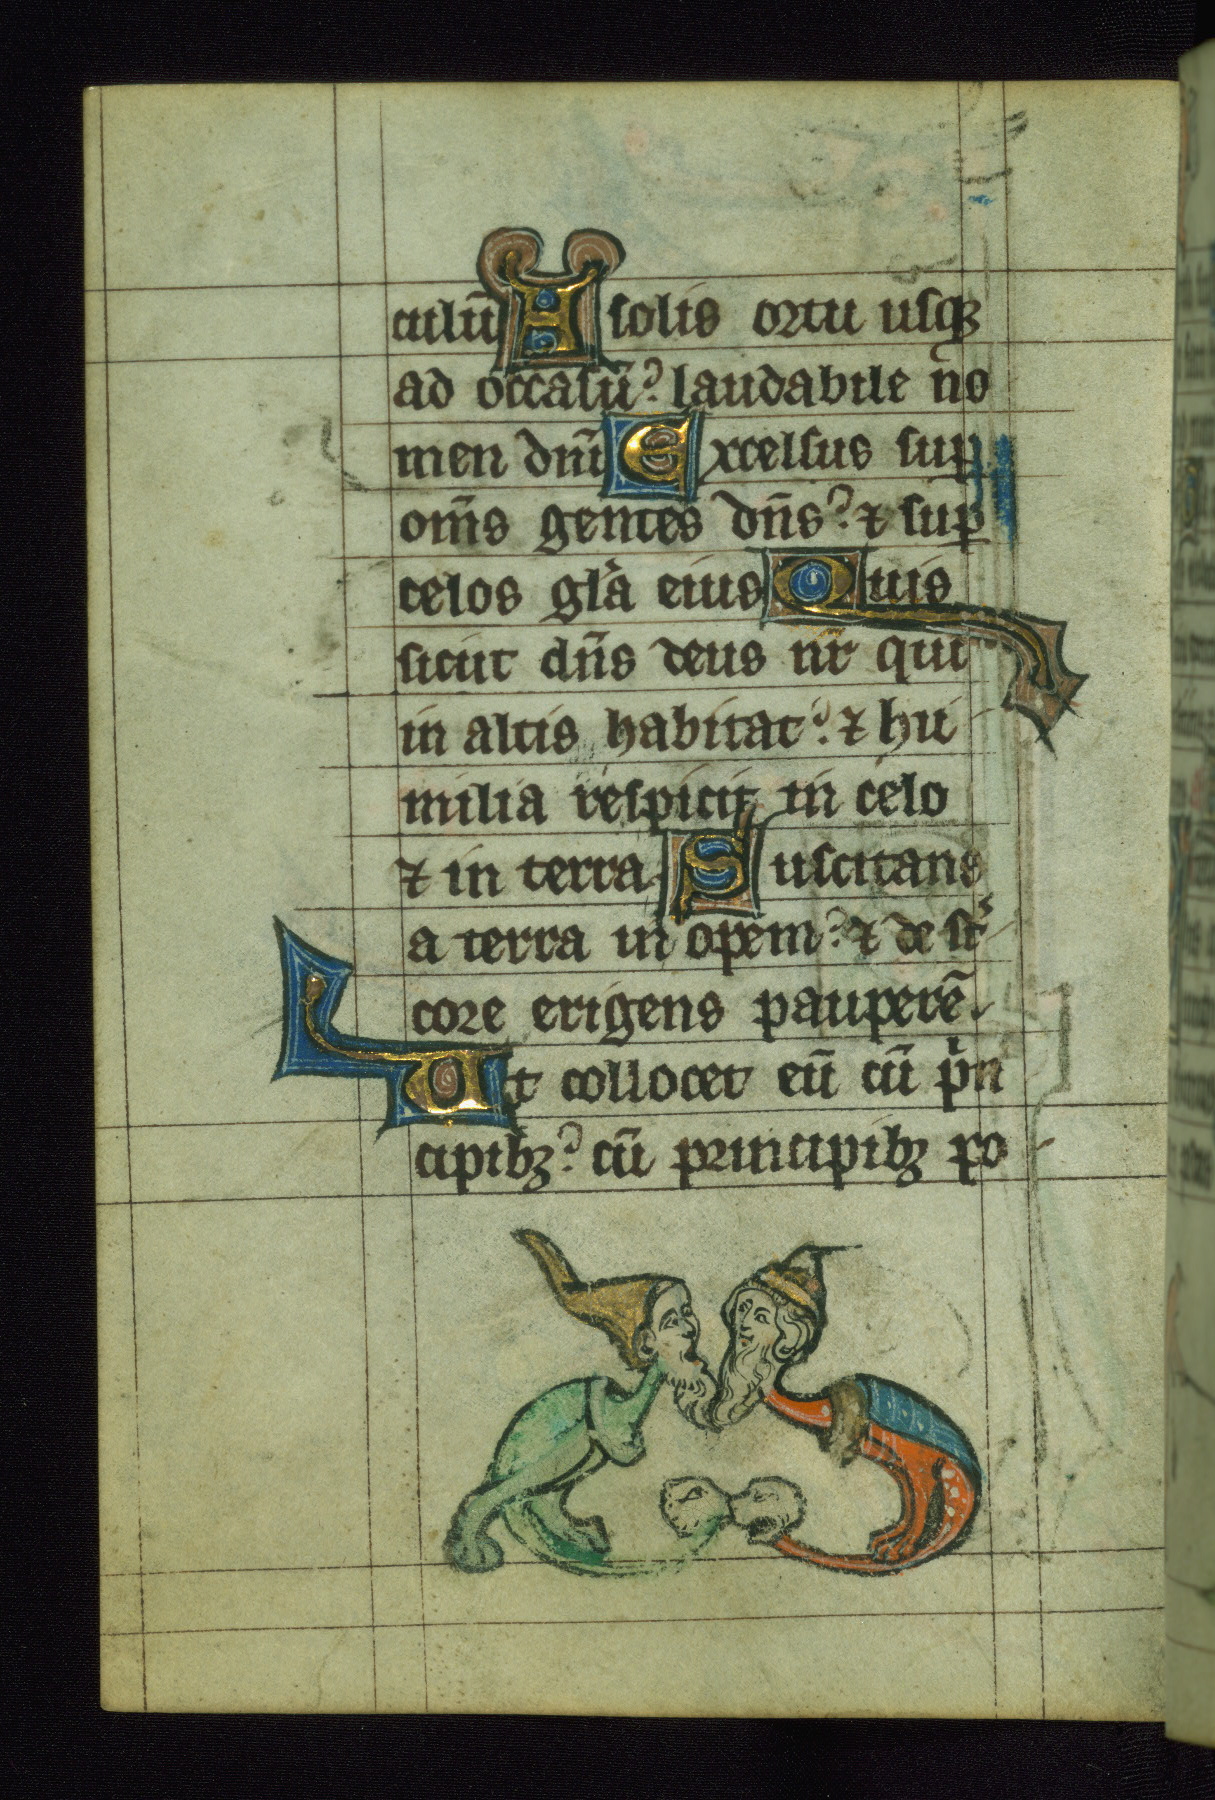 culū A solis ortu usqꝫ
ad occasū? laudabile no
men dn̄i Excelsus sup̄
om̄s gentes dn̄s? ⁊ sup̄
celos gl̄a eius Quis
sicut dn̄s deus nr̄ qui
in altis habitat? ⁊ hu
milia respicit in celo
⁊ in terra Suscitans
a terra inopem? ⁊ de st̄
core erigens pauperē.
Ut collocet eū cū p̄n
cipibꝫ? cū principibꝫ po